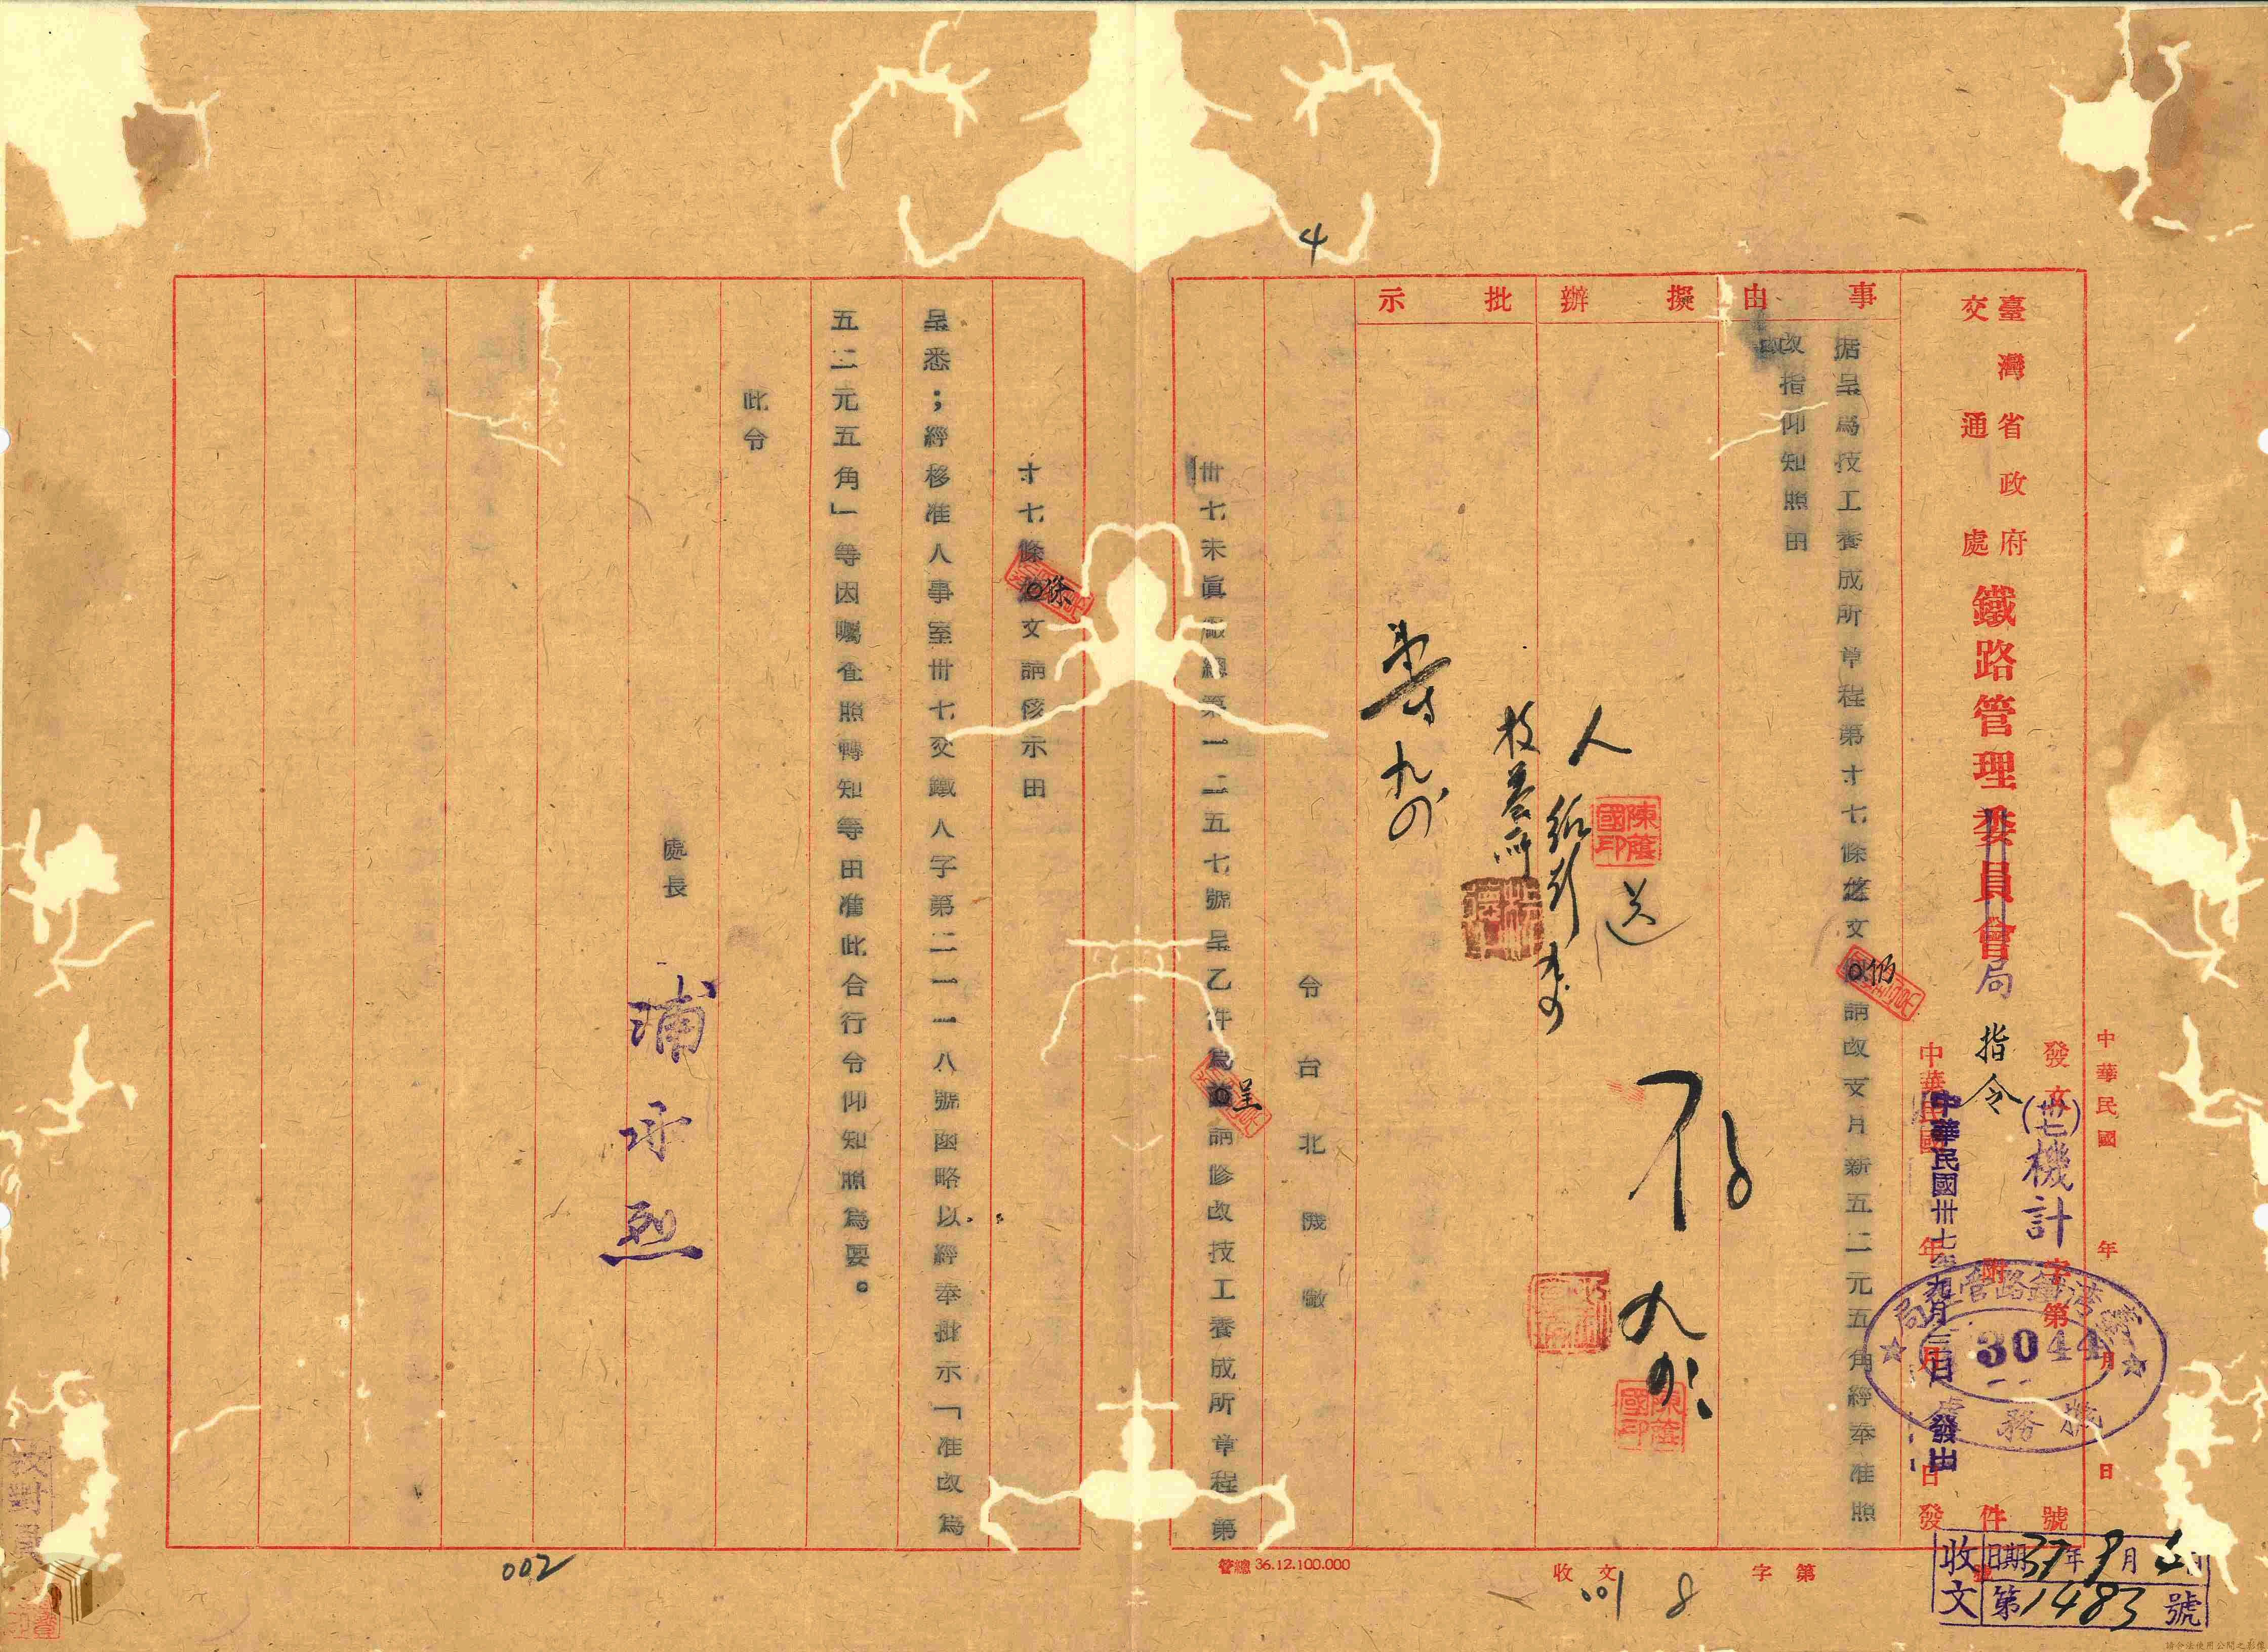 中華民國 年 月 日
發文(卅七)機計字第 號
臺灣省政府
交通處
鐵路管理委員會局 指令
附 件
中華民國 年 月 日發
中華民國卅七年九月三日發出
臺灣鐵路管理局
3044
機務處
收文
日期37年9月4日
第1483號
事由
据呈為技工養成所章程第十七條條文仍請改支月新五二元五角經奉准照
改指仰知照由
擬辦
送
人
存
九
陳蔭國印
陳蔭國印
批示
令台北機廠
卅七未真廠總第一二五七號呈乙件為呈請修改技工養成所章程第
十七條條文請核示由
呈悉;經移准人事室卅七交鐵人字第二一一八號函略以經奉批示「准改為
五二元五角」等因囑查照轉知等由准此合行令仰知照為要。
此令
處長 浦承烈
校對員
收文 字第 號
管總 36.12.100.000
001
8
002
4